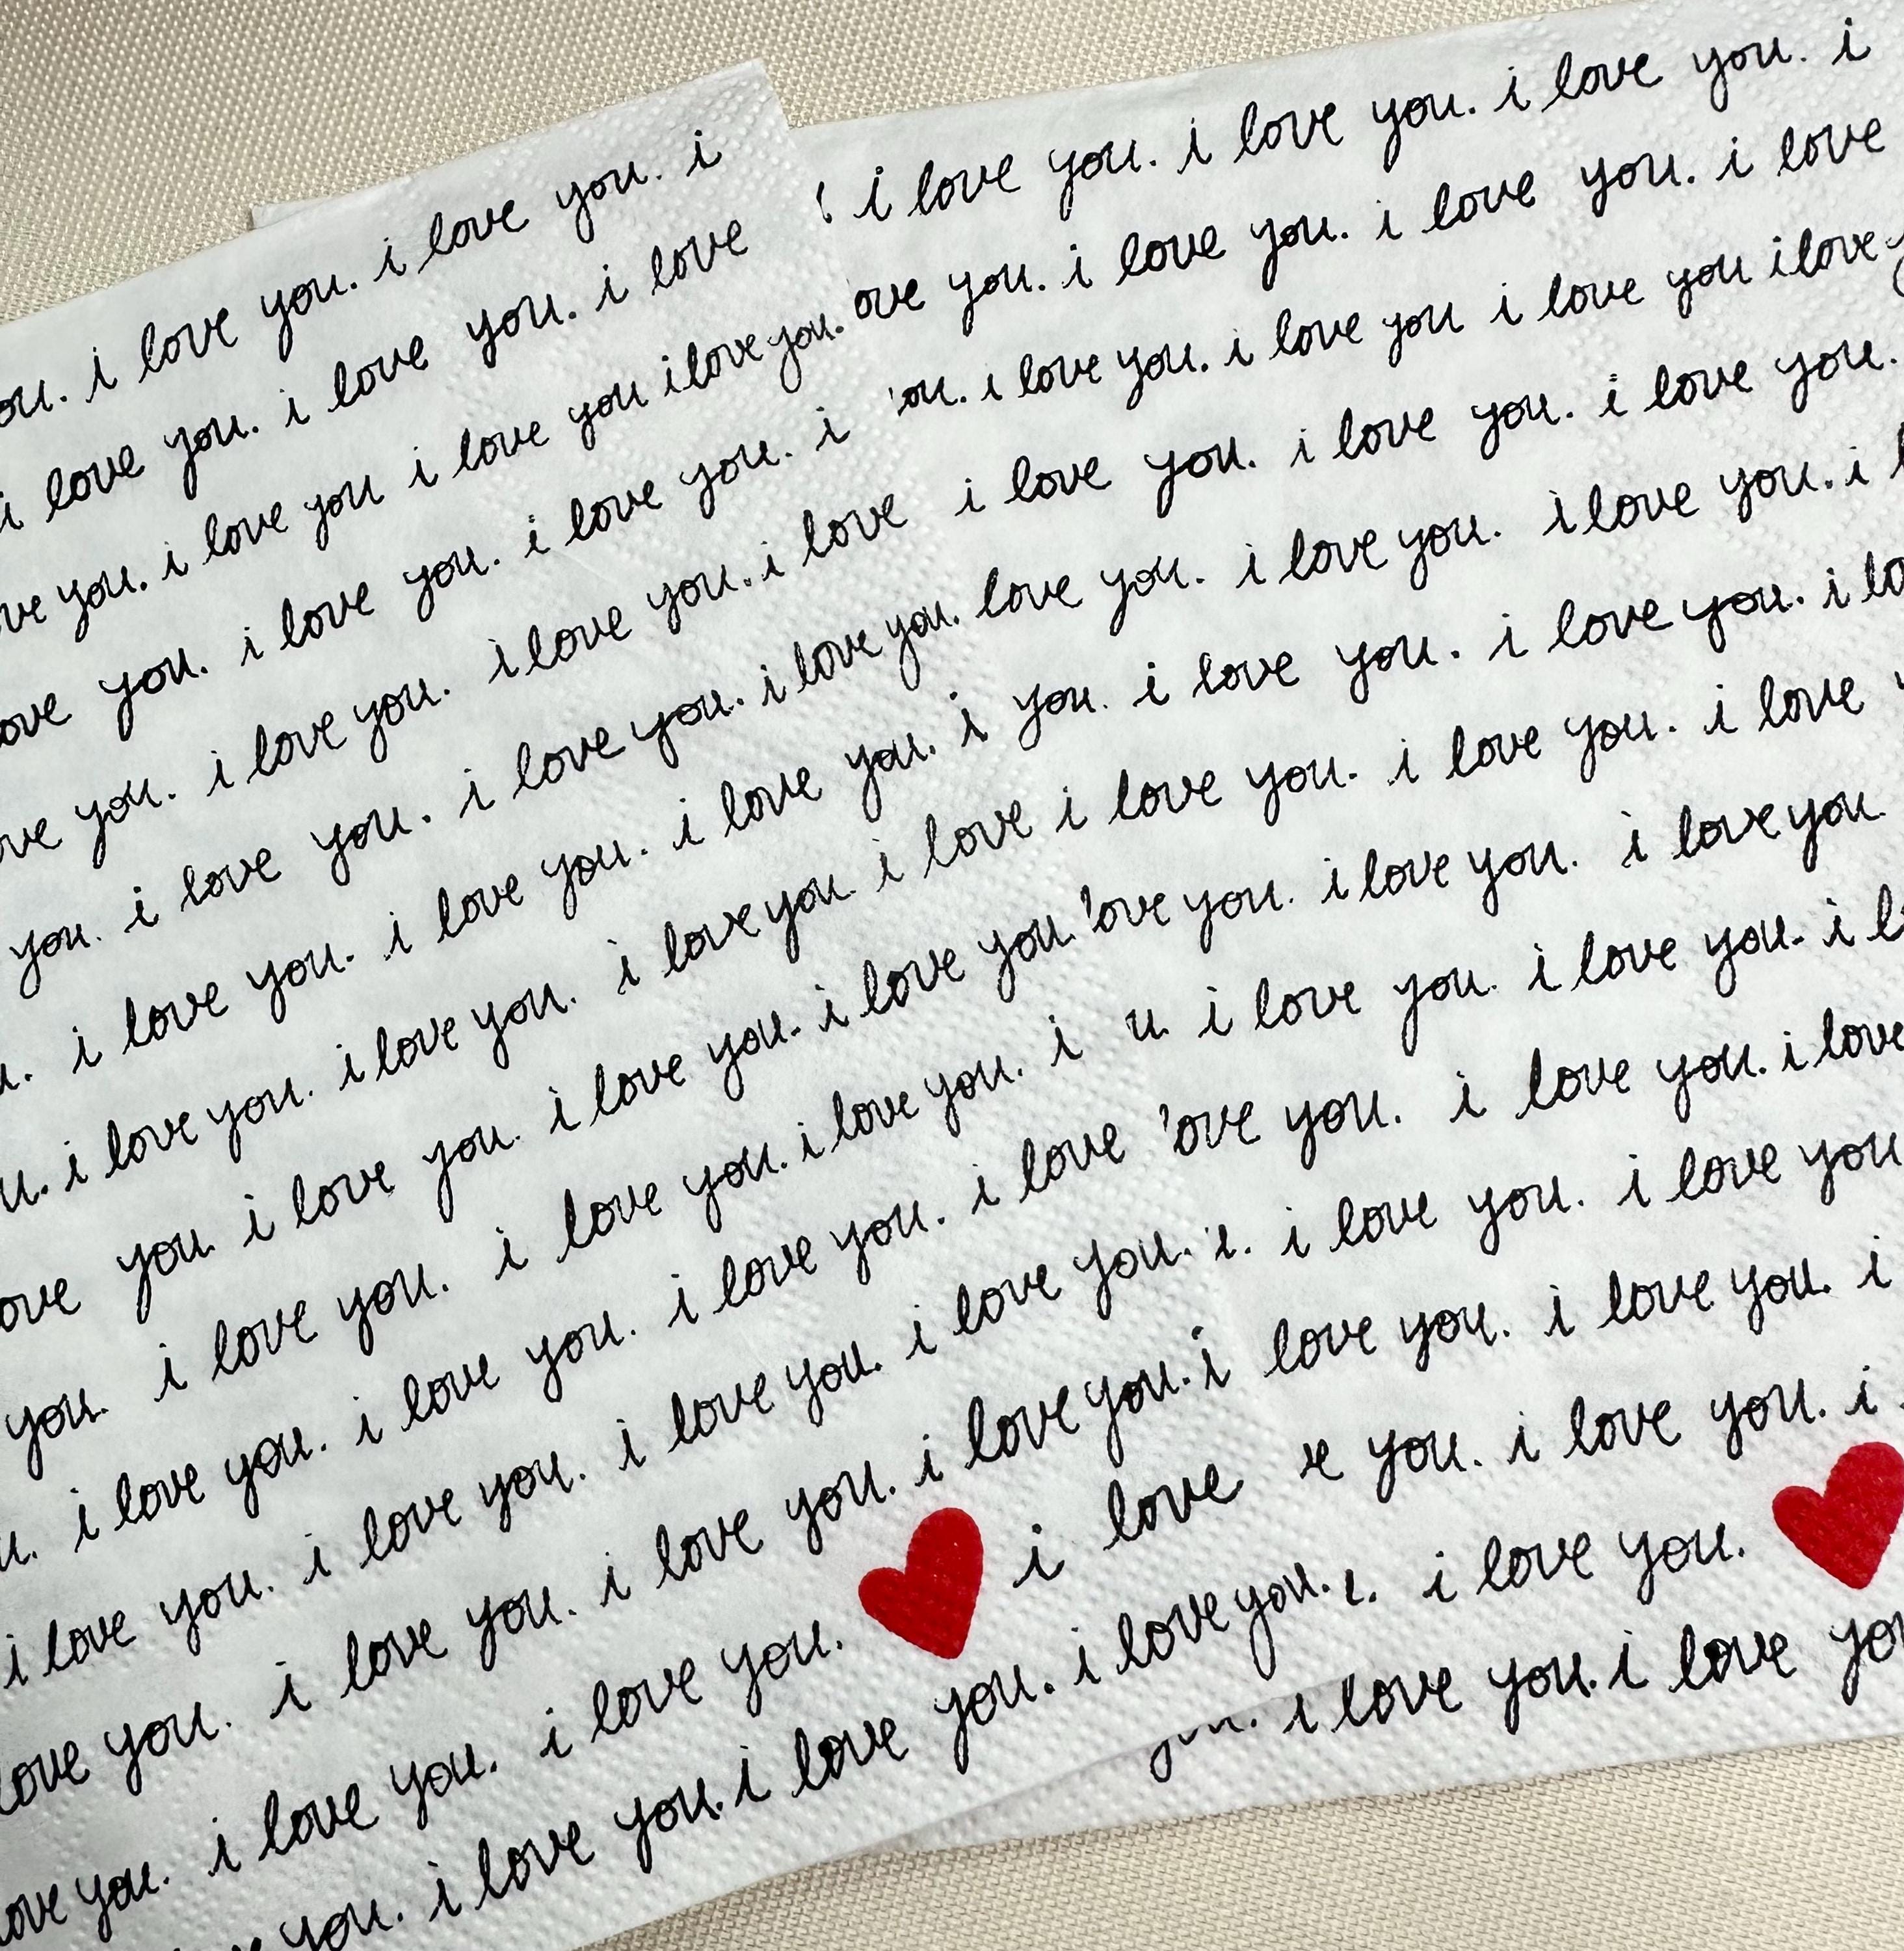 ou. i love you. i love you. i
i love you. i love you. i love
ve you. i love you i love you i love you.
ove you. i love you. i love you. i
ve you. i love you. i love you. i love
you. i love you. i love you. i love you.
u. i love you. i love you. i love you. i
u. i love you. i love you. i love you. i love
ove you. i love you. i love you. i love you.
you. i love you. i love you. i love you. i
u. i love you. i love you. i love you. i love
i love you. i love you. i love you. i love you.
love you. i love you. i love you. i love you. i
ove you. i love you. i love you. i love
you. i love you. i love you. i love you.
i love you. i love you. i love you. i
ove you. i love you. i love you. i love
ou. i love you. i love you i love you i love
i love you. i love you. i love you.
love you. i love you. i love you. i
you. i love you. i love you. i lo
i love you. i love you. i love
ove you. i love you. i love you.
u. i love you. i love you. i l
ove you. i love you. i love
i love you. i love you
love you. i love you. i
e you. i love you. i
i love you.
i love you. i love yo